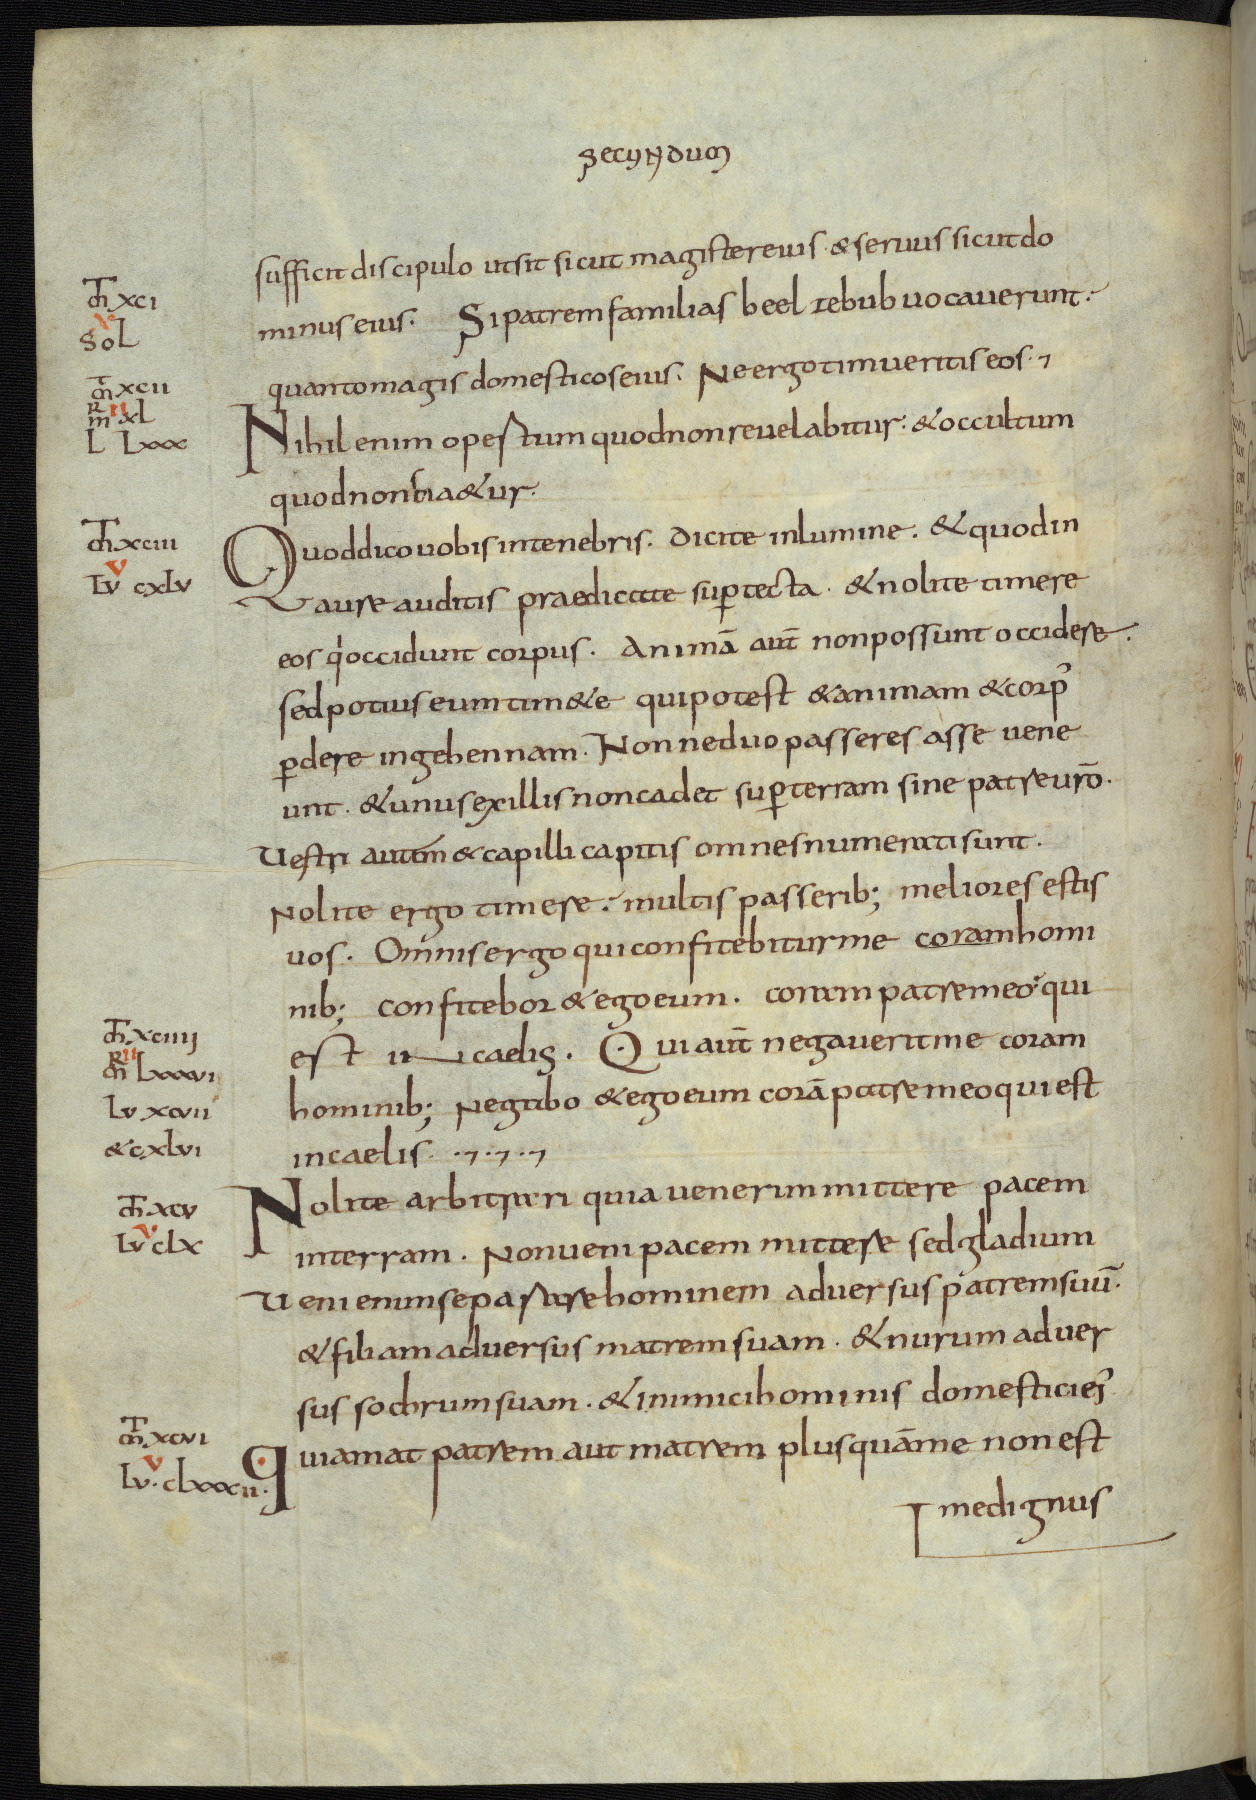 secundum
sufficit discipulo ut sit sicut magister eius & seruus sicut do
minus eius. Si patrem familias beelzebub uocauerunt:
quanto magis domesticos eius. Ne ergo timueritis eos.
Nihil enim opertum quod non reuelabitur: & occultum
quod non scia&ur.
Quod dico uobis in tenebris. dicite in lumine. & quod in
aure auditis praedicate sup̄ tecta. & nolite timere
eos qi occidunt corpus. Animā aut̄ non possunt occidere.
sed potius eum tim&e qui potest & animam & corp'
p̄dere in gehennam. Nonne duo passeres asse uene
unt. & unus ex illis non cadet sup̄ terram sine patre ur̄o.
Uestri autem & capilli capitis omnes numerati sunt.
Nolite ergo timere: multis passerib; meliores estis
uos. Omnis ergo qui confitebitur me coram homi
nib; confitebor & ego eum. coram patre meo: qui
est in caelis. Qui aut̄ negauerit me coram
hominib; Negabo & ego eum corā patre meo qui est
in caelis
Nolite arbitrari quia uenerim mittere pacem
in terram. Non ueni pacem mittere sed gladium
Ueni enim separare hominem aduersus patrem suū.
& filiam aduersus matrem suam. & nurum aduer
sus sochrum suam. & inimici hominis domestici ei'
Qui amat patrem aut matrem plus quā me non est
me dignus
xci
x
so L
xcii
ii
xL
L Lxxx
xciii
v
Lu cxLv
xciiii
ii
Lxxxvi
Lu xcvii
& cxLvi
xcv
v
Lu cLx
xcvi
v
Lu. cLxxxii.